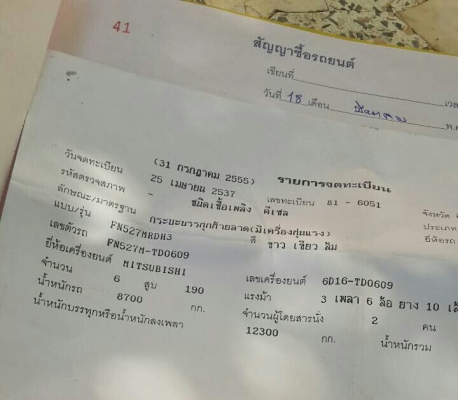 41
สัญญาซื้อรถยนต์
เขียนที่
เวล
วันที่ 18 เดือน
พ.ศ
รายการจดทะเบียน
วันจดทะเบียน (31 กรกฎาคม 2555)
รหัสตรวจสภาพ 25 เมษายน 2537 เลขทะเบียน 81 - 6051 จังหวัด
ลักษณะ/มาตรฐาน - ชนิดเชื้อเพลิง ดีเซล ประเภท
กระบะบรรทุกท้ายลาด(มีเครื่องทุ่นแรง) ยี่ห้อรถ
แบบ/รุ่น FN527MRDH3 สี ขาว เขียว ส้ม
เลขตัวรถ FN527M-TD0609
ยี่ห้อเครื่องยนต์ MITSUBISHI เลขเครื่องยนต์ 6D16-TD0609
จำนวน 6 สูบ 190 แรงม้า 3 เพลา 6 ล้อ ยาง 10 เส้
น้ำหนักรถ 8700 กก. จำนวนผู้โดยสารนั่ง 2 คน
น้ำหนักบรรทุกหรือน้ำหนักลงเพลา 12300 กก. น้ำหนักรวม